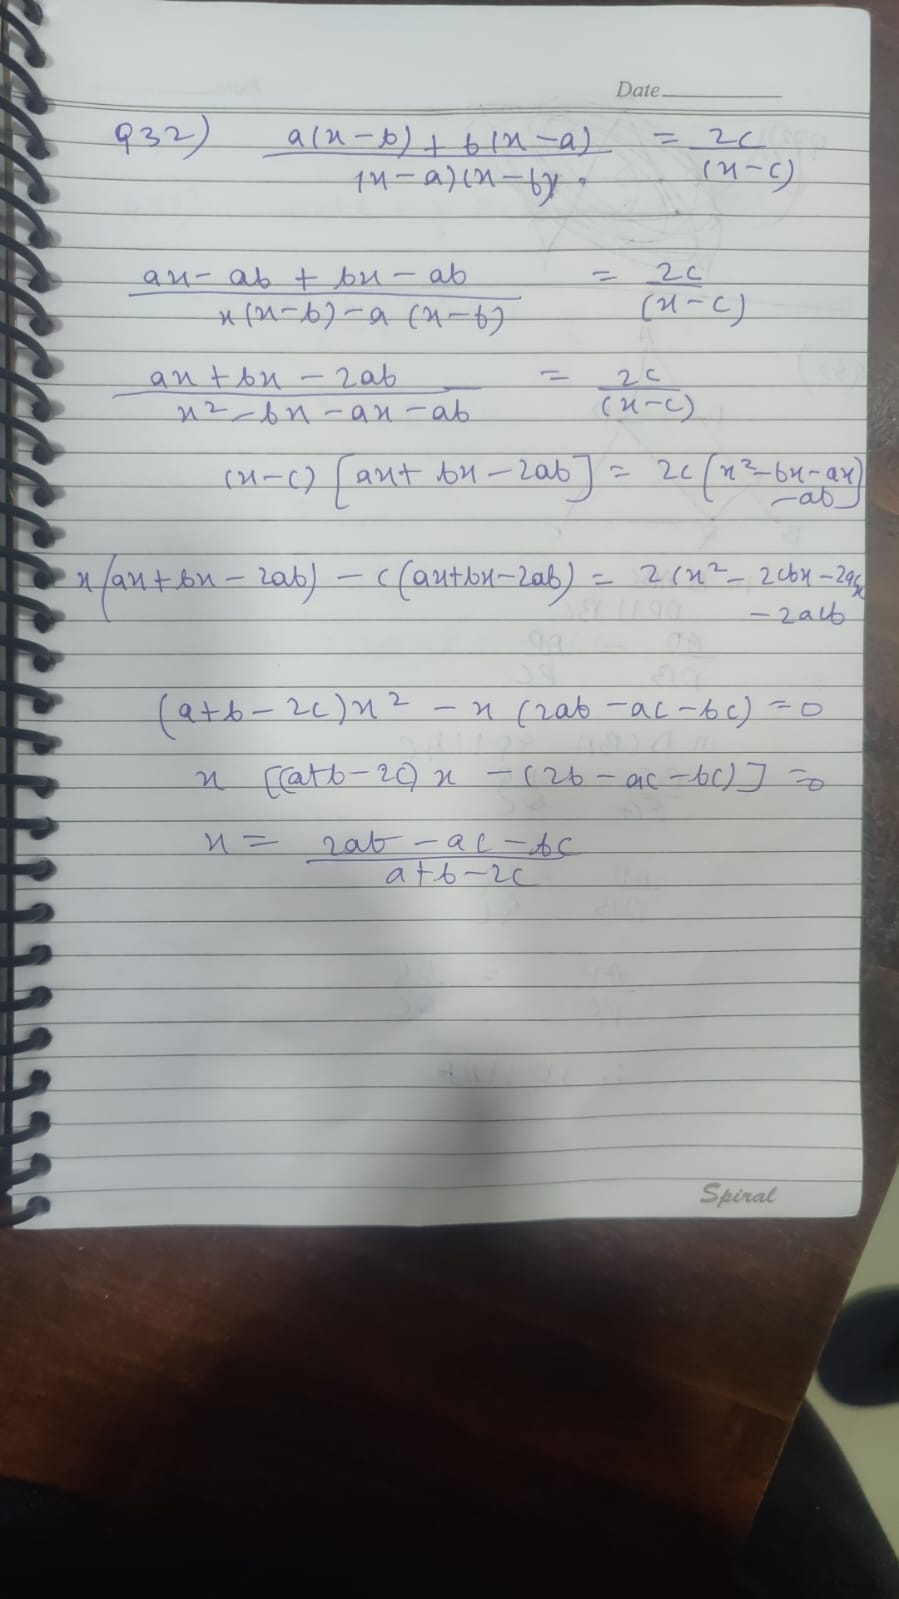 Date
Q32) a(x-b) + b(x-a) / (x-a)(x-b) = 2c / (x-c)
ax - ab + bx - ab / x(x-b) - a(x-b) = 2c / (x-c)
ax + bx - 2ab / x² - bx - ax - ab = 2c / (x-c)
(x-c) [ax + bx - 2ab] = 2c (x² - bx - ax
- ab)
x(ax + bx - 2ab) - c(ax + bx - 2ab) = 2cx² - 2cbx - 2acx
- 2acb
(a+b-2c)x² - x(2ab - ac - bc) = 0
x [(a+b-2c)x - (2b - ac - bc)] = 0
x = 2ab - ac - bc / a+b-2c
Spiral